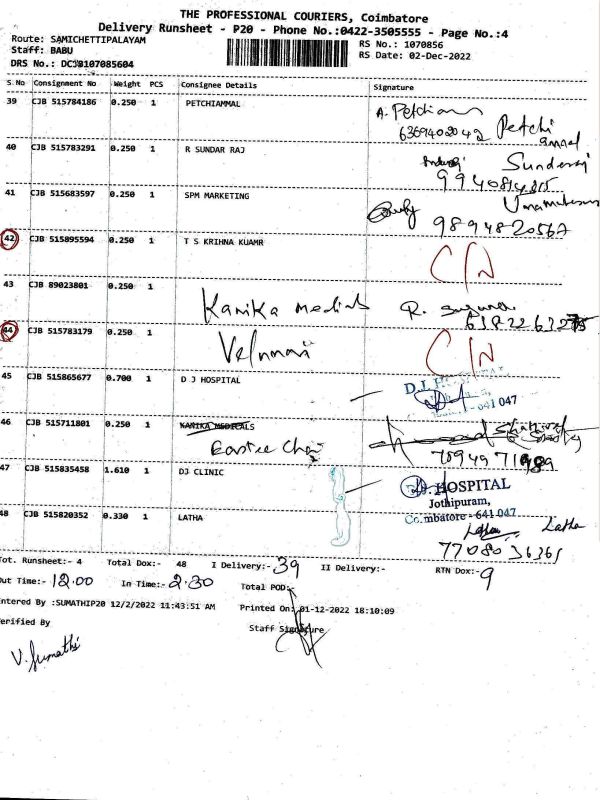 THE PROFESSIONAL COURIERS, Coimbatore
Delivery Runsheet - P20 - Phone No.:0422-3505555 - Page No.:4
Route: SAMICHETTIPALAYAM RS No.: 1070856
Staff: BABU RS Date: 02-Dec-2022
DRS No.: DCJB107085604
S No Consignment No Weight PCS Consignee Details Signature
39 CJB 515784186 0.250 1 PETCHIAMMAL
A. Petchiam
6369402042 Petchi ammal
40 CJB 515783291 0.250 1 R SUNDAR RAJ Sunderaj
9940814815
41 CJB 515683597 0.250 1 SPM MARKETING
9894820567
42 CJB 515895594 0.250 1 T S KRIHNA KUAMR C/N
43 CJB 89023801 0.250 1
Kanika Medicals R.
44 CJB 515783179 0.250 1 C/N
45 CJB 515865677 0.700 1 D J HOSPITAL D.J. HOSPITAL
- 641 047
46 CJB 515711801 0.250 1 KANIKA MEDICALS
47 CJB 515835458 1.610 1 DJ CLINIC HOSPITAL
Jothipuram,
Coimbatore - 641 047
48 CJB 515820352 0.330 1 LATHA Latha Latha
7708036365
Tot. Runsheet:- 4 Total Dox:- 48 I Delivery:- 39 II Delivery:- RTN Dox:- 9
Out Time:- 12.00 In Time:- 2.30 Total POD:-
Entered By :SUMATHIP20 12/2/2022 11:43:51 AM Printed On: 01-12-2022 18:10:09
Verified By Staff Signature
V. Sumathi